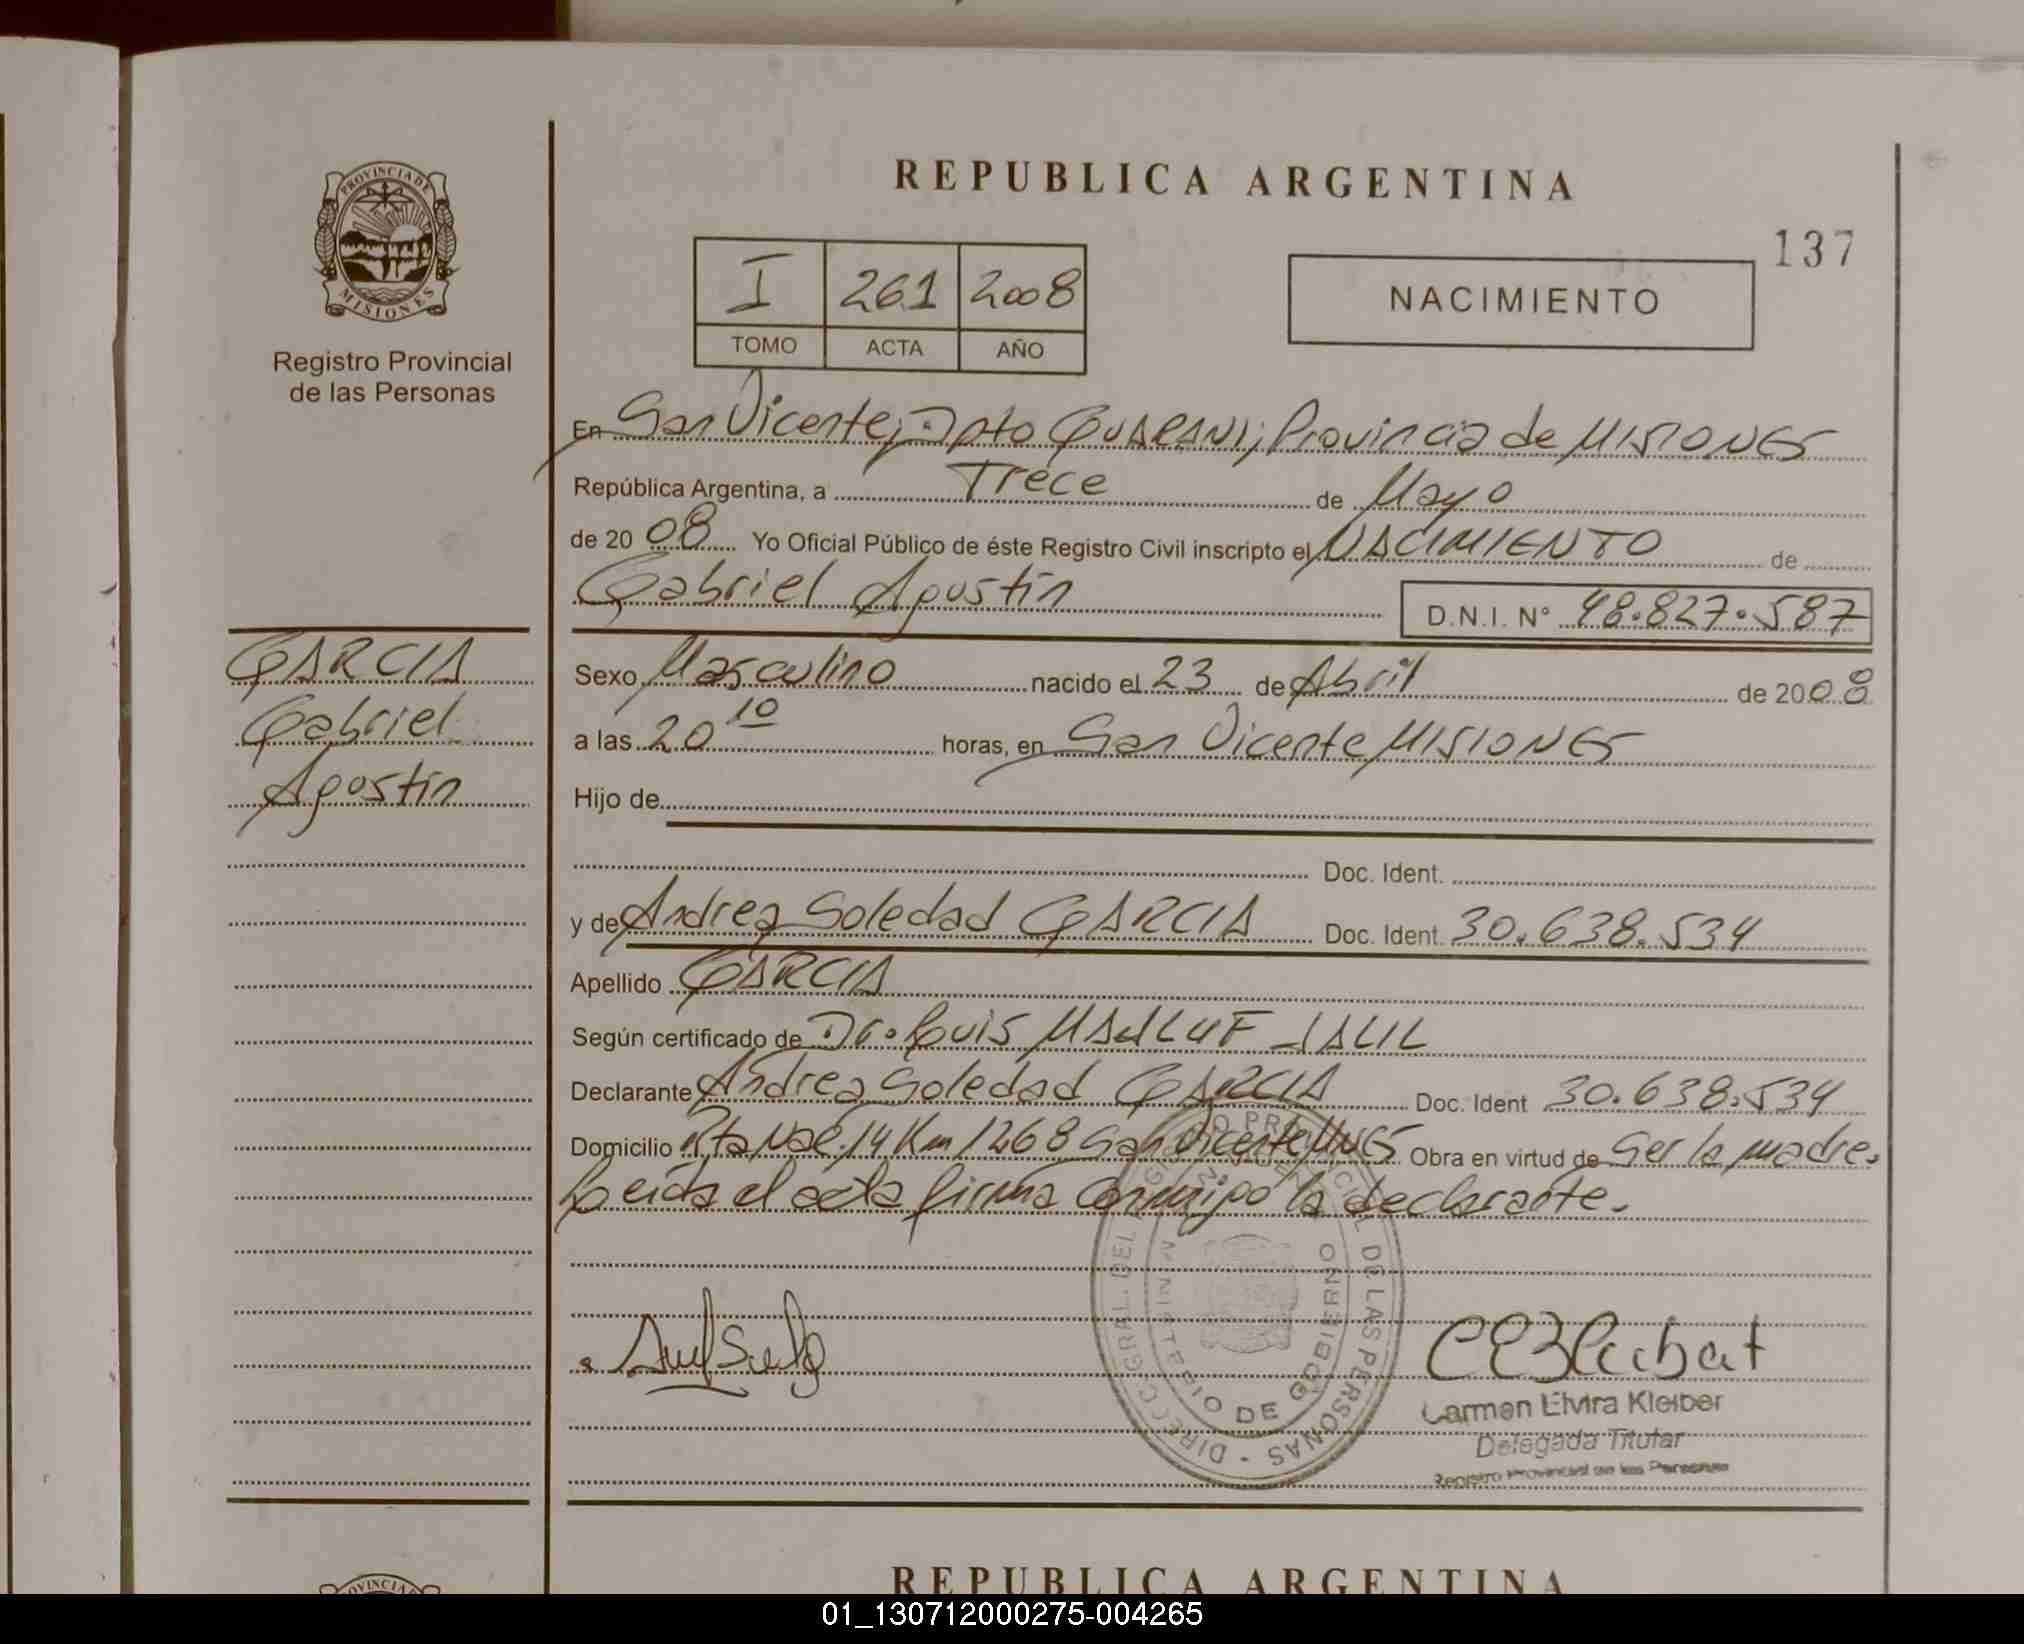 REPUBLICA ARGENTINA
137
PROVINCIA DE MISIONES
Registro Provincial
de las Personas
I 261 2008
TOMO ACTA AÑO
NACIMIENTO
En San Vicente, Dpto GUARANI, Provincia de MISIONES
República Argentina, a Trece de Mayo
de 2008 Yo Oficial Público de éste Registro Civil inscripto el NACIMIENTO de
Gabriel Agustín
D.N.I. N° 48.827.587
GARCIA
Gabriel
Agostín
Sexo Masculino nacido el 23 de Abril de 2008
a las 20 10 horas, en San Vicente MISIONES
Hijo de
Doc. Ident.
y de Andrea Soledad GARCIA Doc. Ident. 30.638.534
Apellido GARCIA
Según certificado de Dr. Luis MALUF JALIL
Declarante Andrea Soledad GARCIA Doc. Ident 30.638.534
Domicilio Rta Nac. 14 Km 1268 San Vicente Mnes Obra en virtud de Ser la madre.
Leída el acta firma conmigo la declarante.
DIRECC. GRAL. DEL REGISTRO PROVINCIAL DE LAS PERSONAS
MINISTERIO DE GOBIERNO
Carmen Elvira Kleiber
Delegada Titular
Registro Provincial de las Personas
PROVINCIA
REPUBLICA ARGENTINA
01_130712000275-004265